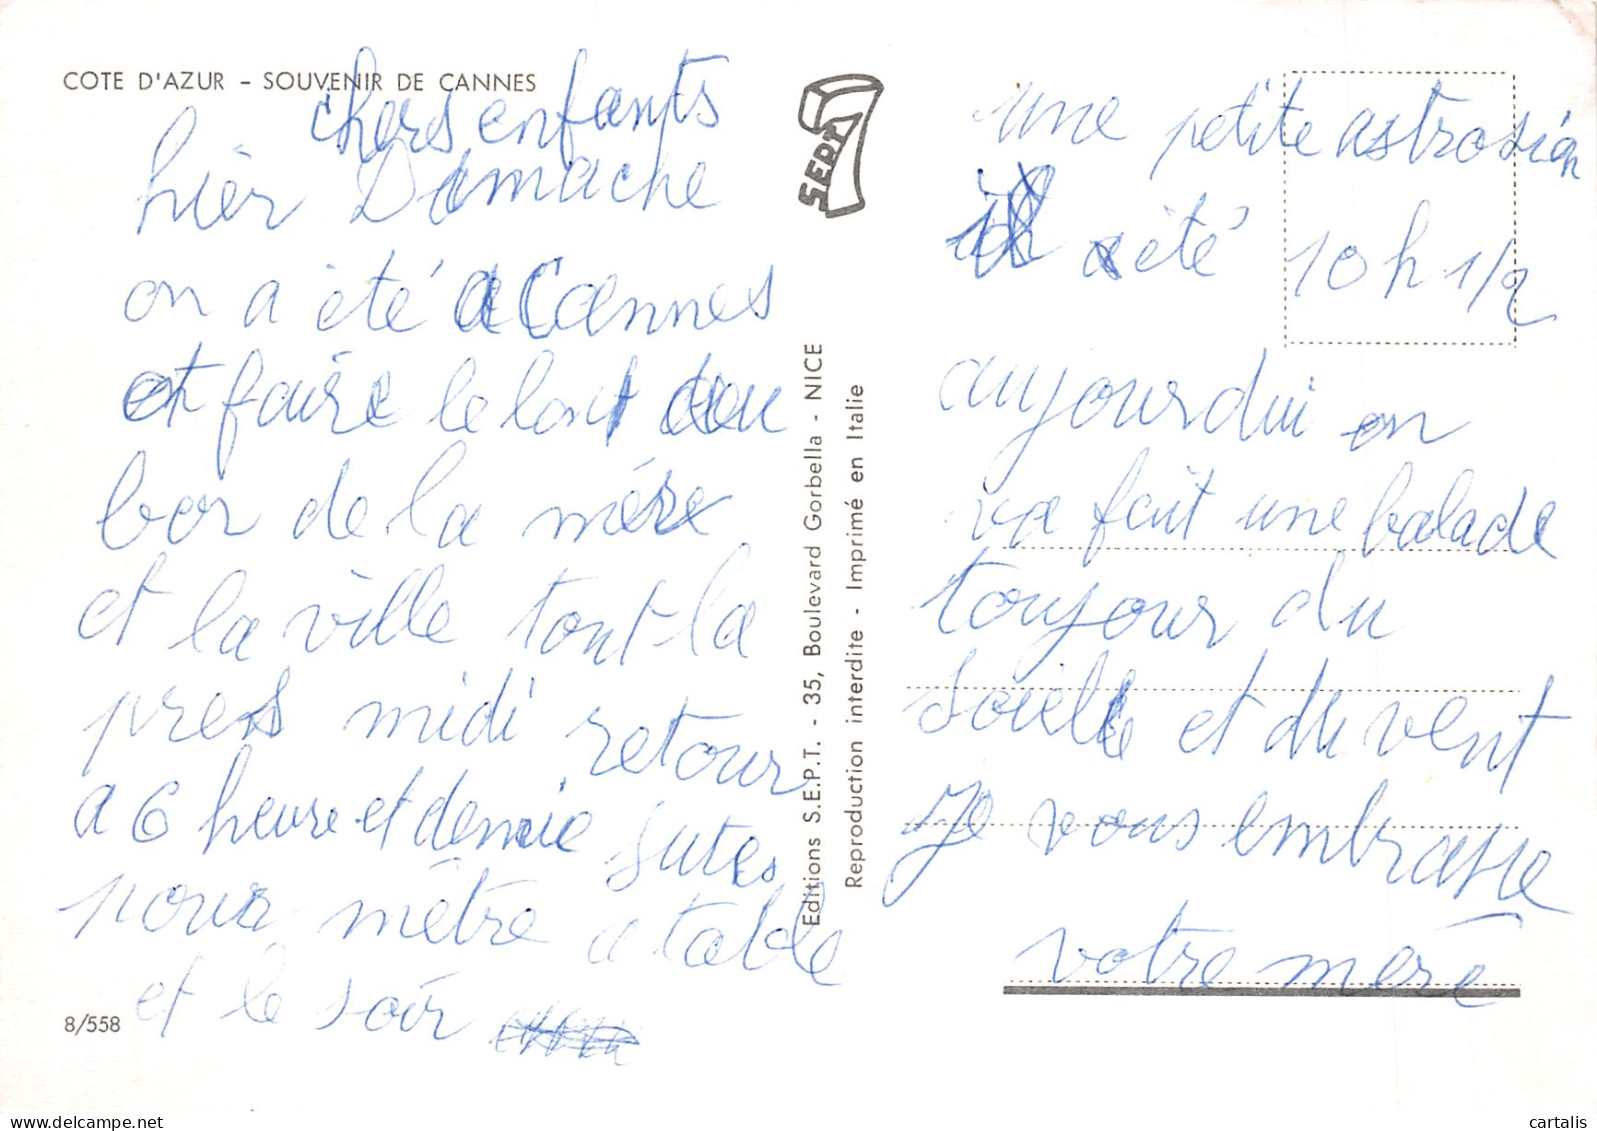 COTE D'AZUR - SOUVENIR DE CANNES
chers enfants
hier Dimache
on a été a Cannes
et faire le lont du
bor de la mére
et la ville tout la
pres midi retour
a 6 heure et demie sutes
pour métre a table
et le soir
8/558
SEPT
Editions S.E.P.T. - 35, Boulevard Gorbella - NICE
Reproduction interdite - Imprimé en Italie
une petite
été 10 h 1/2
aujourdui on
va fait une balade
toujour du
soielle et du vent
Je vous embrasse
votre mere
cartalis